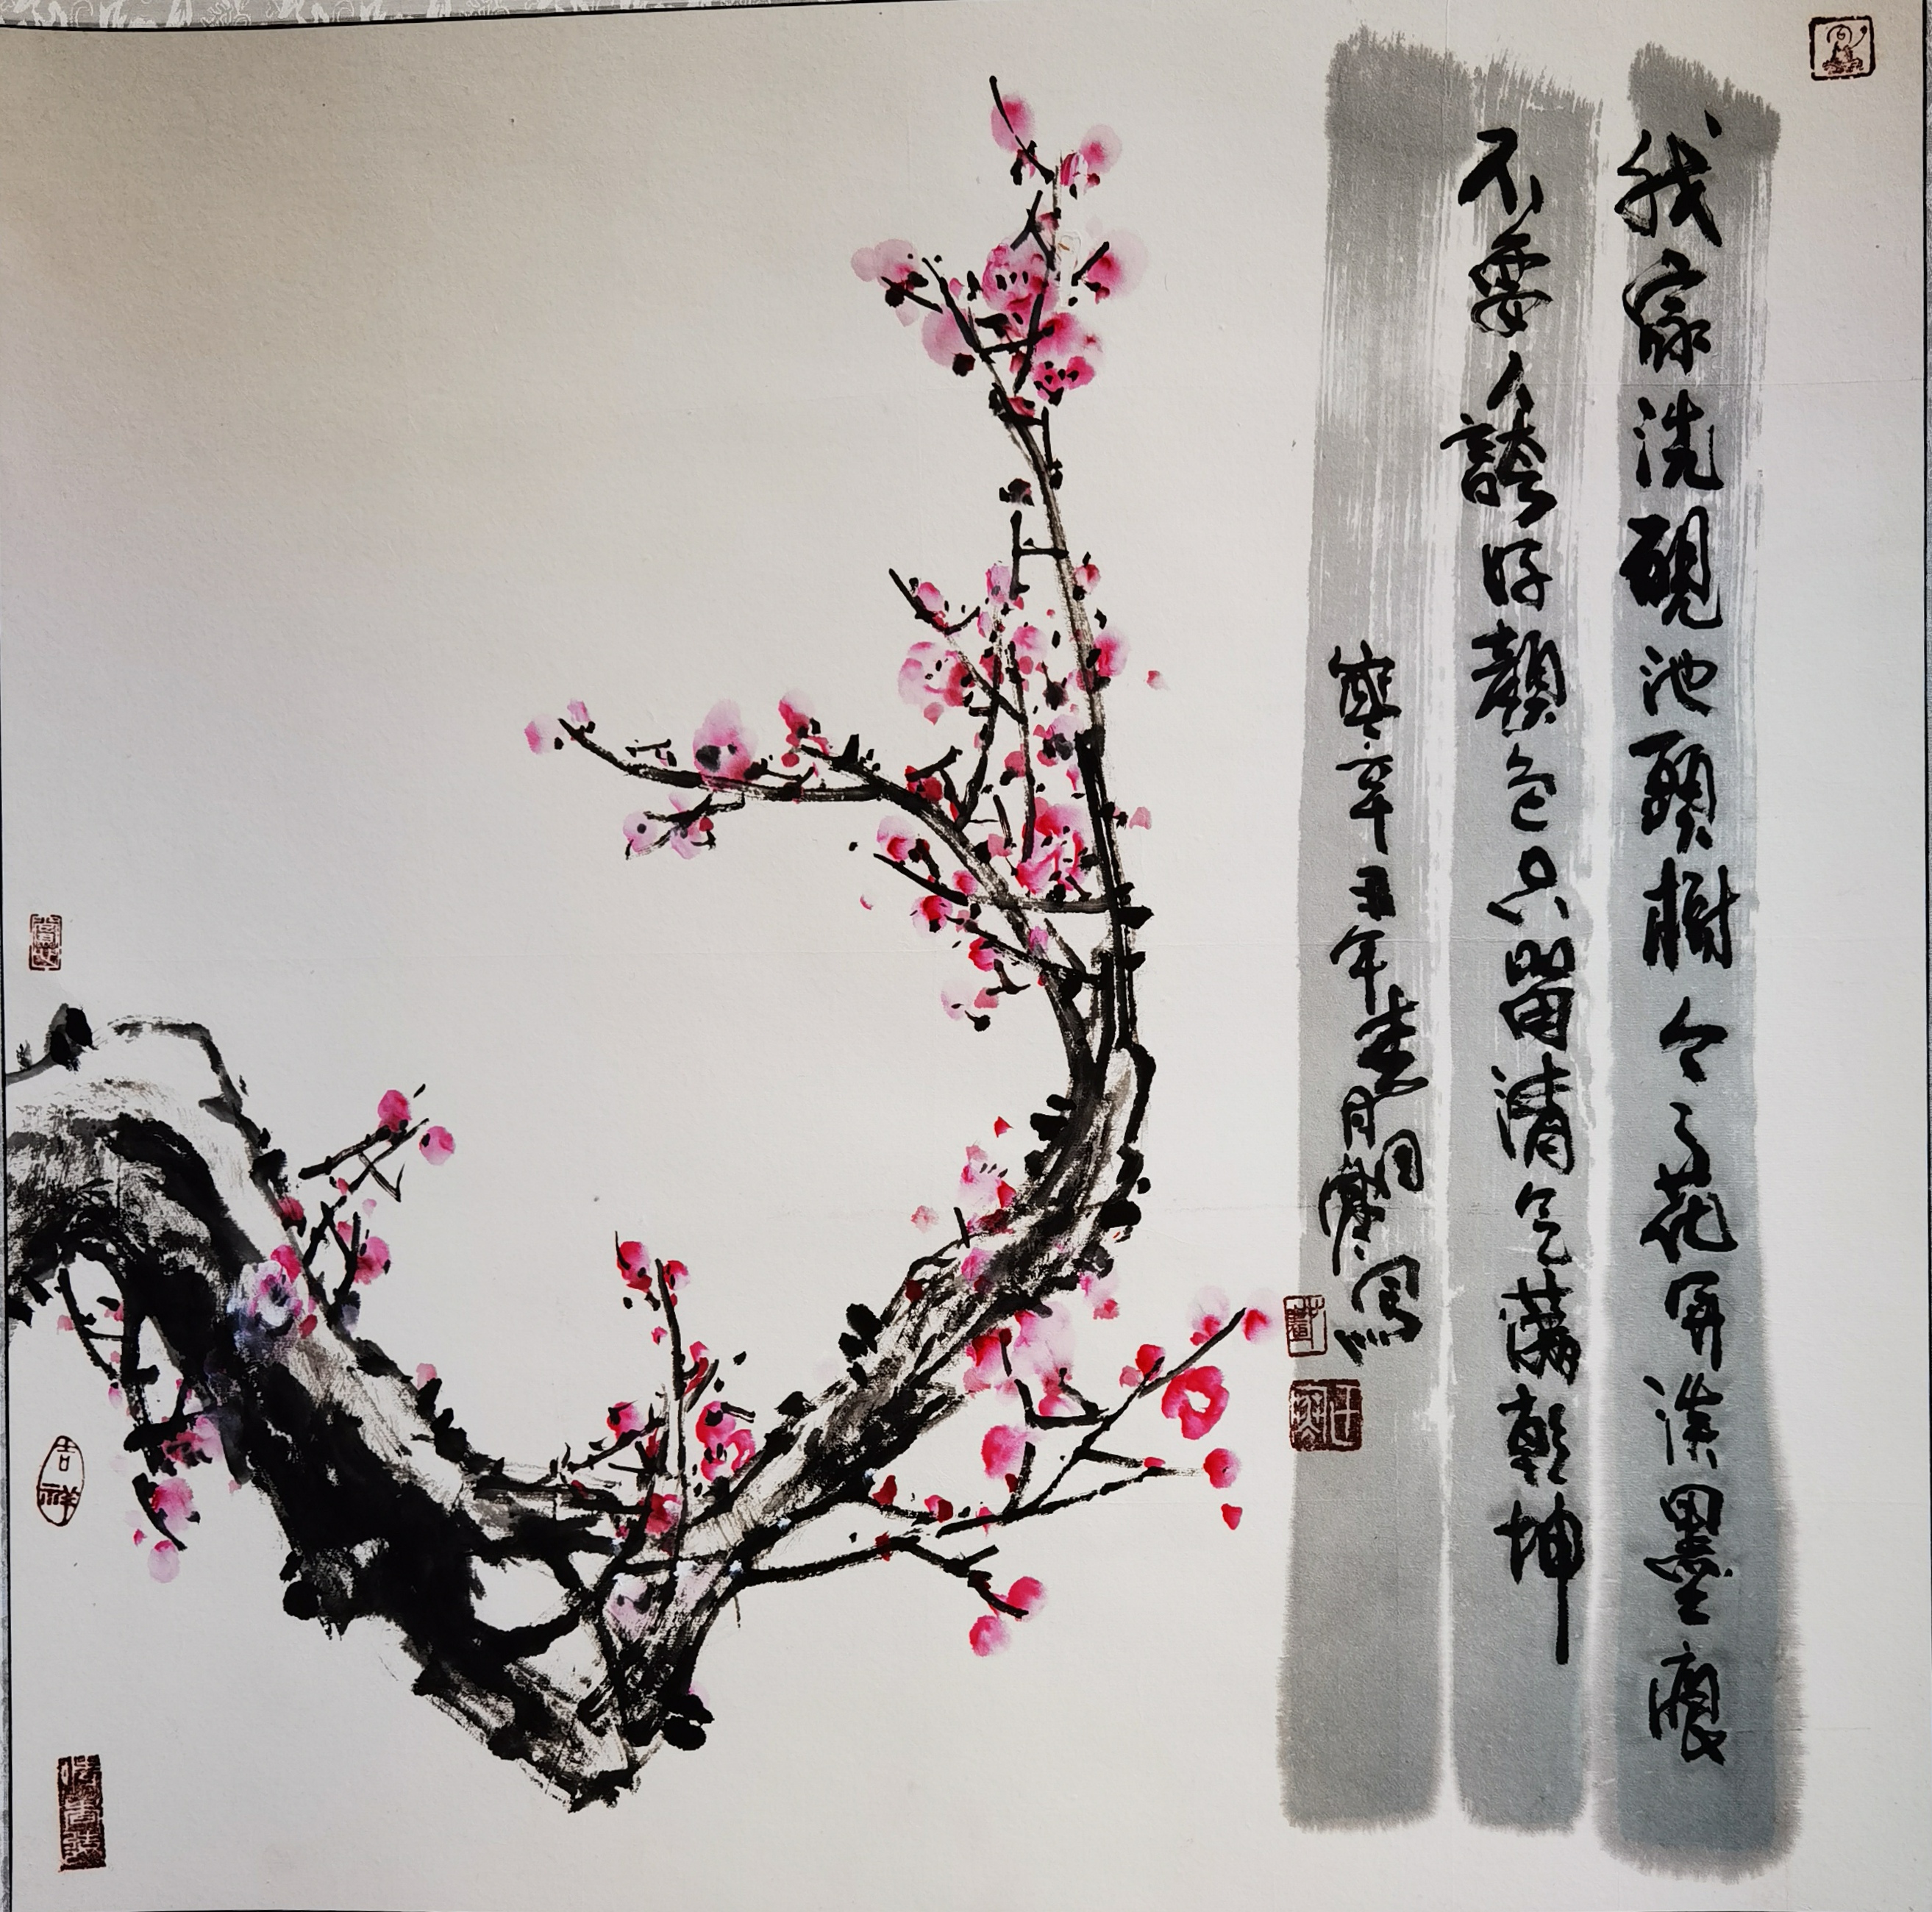 我家洗硯池頭樹个々花開淡墨痕
不要人誇好顏色只留清气滿乾坤
辛丑年春月寫
吉祥